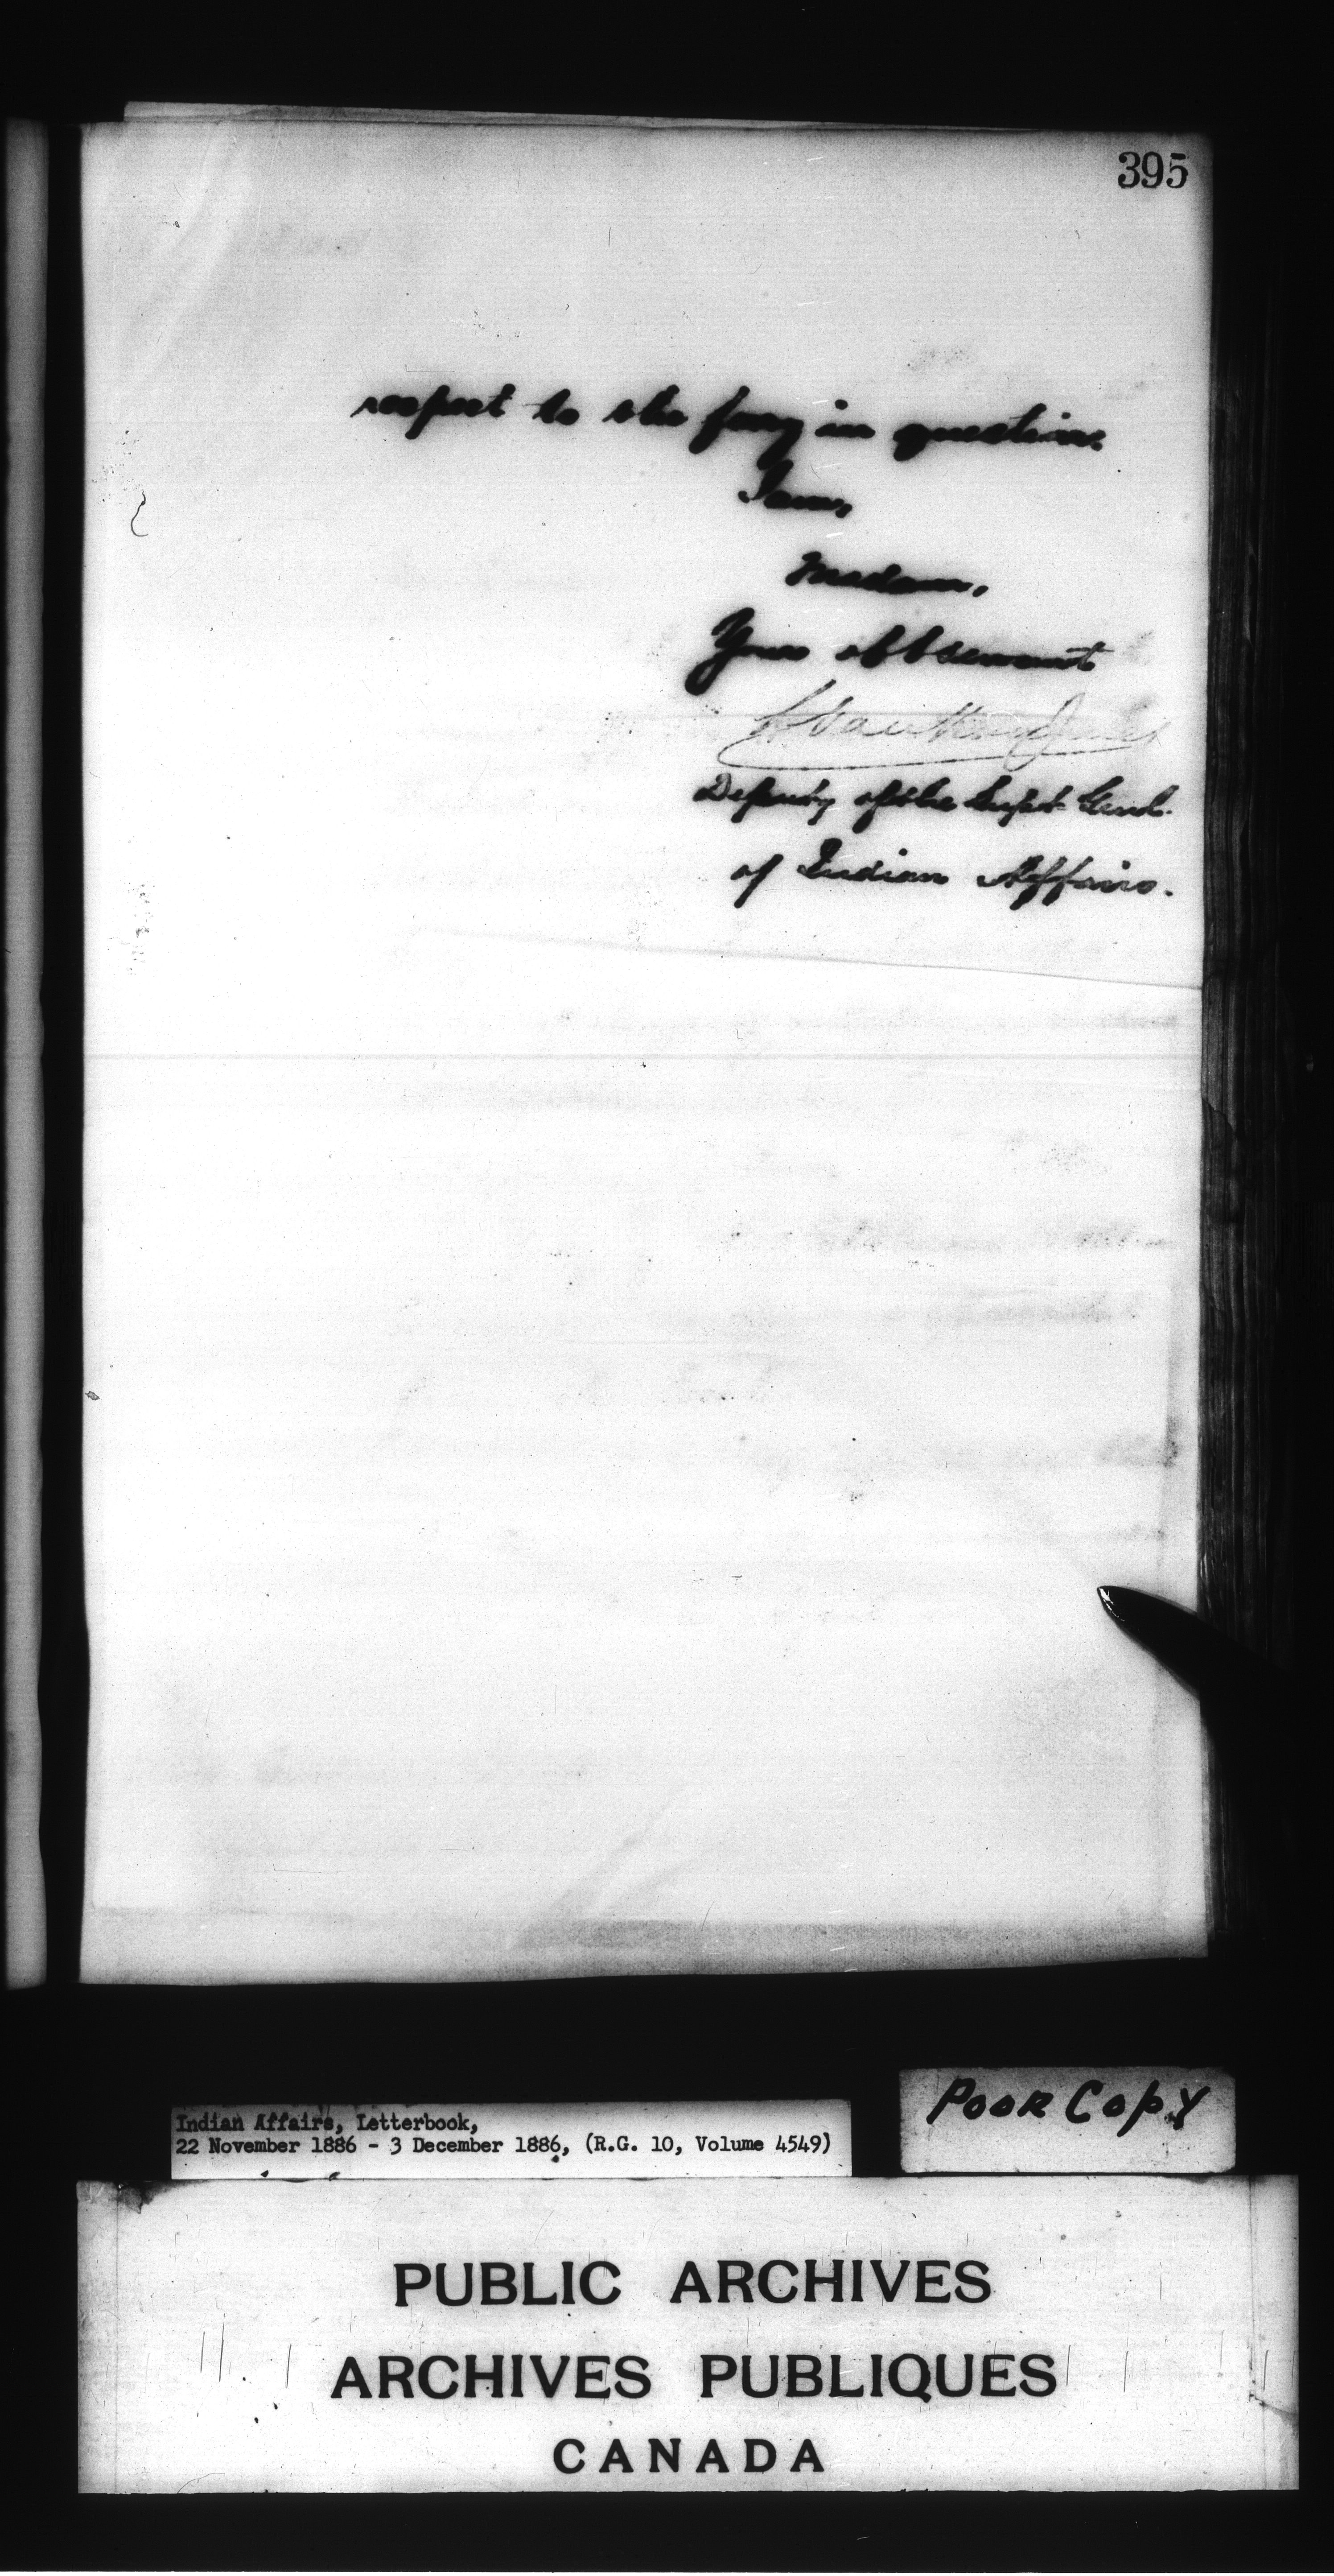 395
respect to the ferry in question.
I am,
Madam,
Your obt servant
L. Vankoughnet
Deputy of the Supt. Genl.
of Indian Affairs.
Indian Affairs, Letterbook,
22 November 1886 - 3 December 1886, (R.G. 10, Volume 4549)
POOR COPY
PUBLIC ARCHIVES
ARCHIVES PUBLIQUES
CANADA